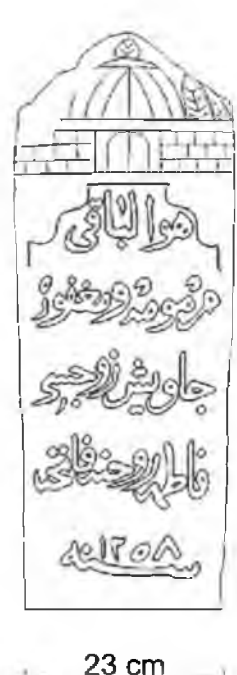 هوالباقى
مرحومه ومغفوره
جاويش زوجسى
فاطمه روحنه فاتحه
سنه ١٢٥٨
23 cm